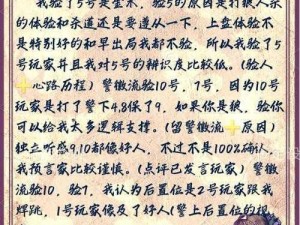 我验了5号是金水，验5的原因是打狼人杀
的体验和杀道还是要遵从一下，上盘体验不
是特别好的和早出局我都不验，所以我验了5
号玩家并且我对5号的辩识度比较低。（验人
心路历程）警徽流验10号，1号，因为10号
玩家是打了警下4.8保了9。如果你是狼，验你
可以给我太多逻辑支撑。（留警徽流原因）
独立听感9,10都像好人，不过不是100%确认，
我预言家比较谨慎。（点评已发言玩家）警徽
流验10，验1。我认为后置位是2号玩家跟我
焊跳，1号玩家像及了好人（警上后置位的